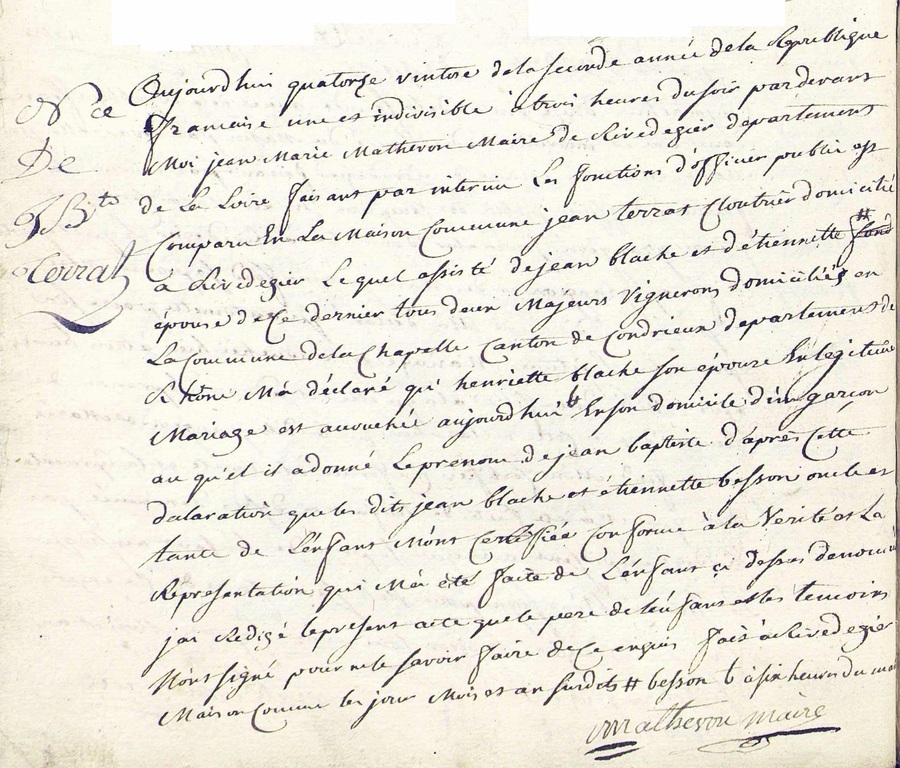 Nce
De
J Bte
Terrat
Aujourd'hui quatorze vintose de la seconde année de la Republique
francaise une et indivisible à trois heures du soir pardevant
Moi jean Marie Mathevon Maire de Rivedegier departement
de La Loire faisant par interim Les fonctions d'officier public est
Comparu En La Maison Commune jean terrat Cloutier domicilié
a Rivedegier Lequel assisté de jean blache et d'étiennette #
épouse de Ce dernier tous deux Majeurs Vignerons domiciliés en
La Commune de la Chapelle Canton de Condrieux departement du
Rhône M'a déclaré qu'henriette blache son épouse En legitime
Mariage est accouchée aujourd'hui b En son domicile d'un garçon
au qu'el il a donné Le prenom de jean baptiste d'après Cette
declaration que les dits jean blache et étiennette besson oncle et
tante de L'énfant M'ont Certifiée Conforme à la Verité et La
Représentation qui M'a été faite de L'énfant ci dessus denommé
jai Redigé le present acte que le pere de l'énfant et les temoins
N'ont signé pour ne le savoir faire de Ce enquis fait à Rivedegier
Maison Commune les jour Mois et an susdits # besson b à six heures du ma
Mathevon maire